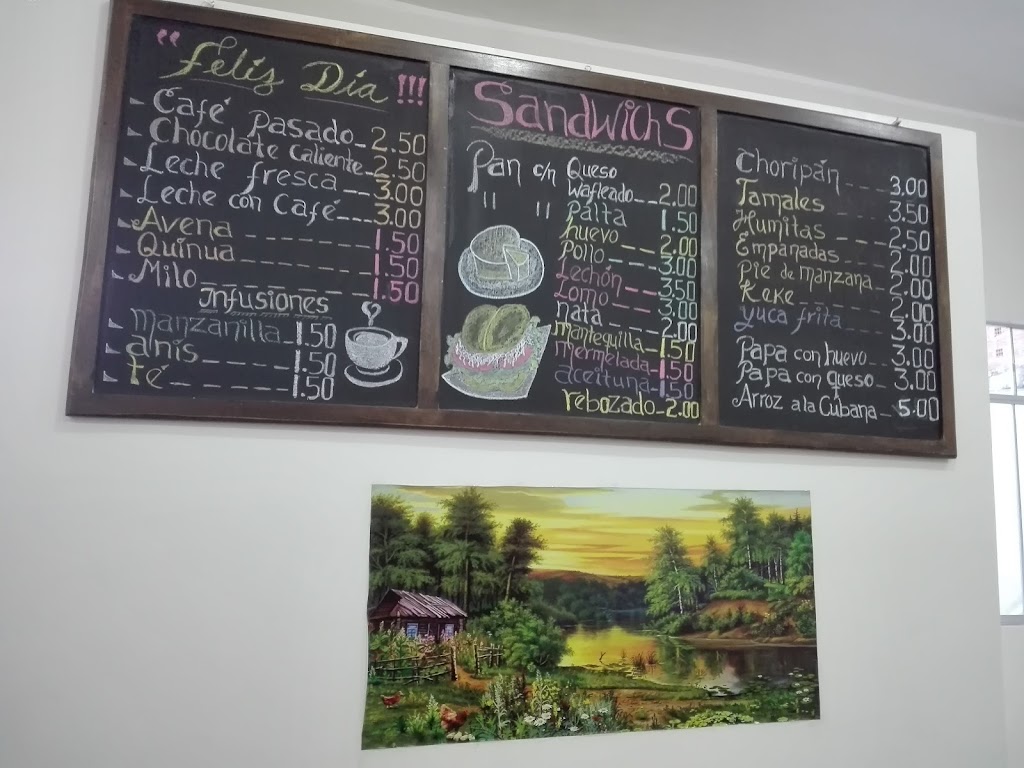 "Feliz Día !!!
Café Pasado 2.50
Chocolate Caliente 2.50
Leche fresca 3.00
Leche con Café 3.00
Avena 1.50
Quinua 1.50
Milo 1.50
Infusiones
Manzanilla 1.50
anis 1.50
té 1.50
Sandwichs
Pan c/n Queso
Wafleado 2.00
" " Palta 1.50
huevo 2.00
Pollo 3.00
Lechón 3.50
Lomo 3.00
nata 2.00
mantequilla 1.50
mermelada 1.50
aceituna 1.50
rebozado 2.00
Choripán 3.00
Tamales 3.50
Humitas 2.50
Empanadas 2.00
Pie de manzana 2.00
Keke 2.00
yuca frita 3.00
Papa con huevo 3.00
Papa con queso 3.00
Arroz a la Cubana 5.00